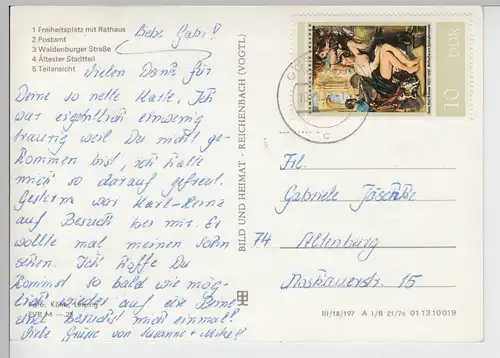 1 Freiheitsplatz mit Rathaus
2 Postamt
3 Waldenburger Straße
4 Ältester Stadtteil
5 Teilansicht
Liebe Gabi!
Vielen Dank für
Deine so nette Karte. Ich
war eigentlich ein wenig
traurig weil Du nicht ge-
kommen bist, ich hatte
mich so darauf gefreut.
Gestern war Karl-Heinz
auf Besuch bei mir. Er
wollte mal meinen Sohn
sehen. Ich hoffe Du
kommst so bald wie mög-
lich wieder auf eine
und besuchst mich einmal!
Viele Grüße von Susanne + Mike!!
Foto: Leipzig
BILD UND HEIMAT · REICHENBACH (VOGTL)
DDR
10
Frl.
Gabriele
74 Altenburg
15
III/18/197 A 1/B 21/74 01 13 10 019